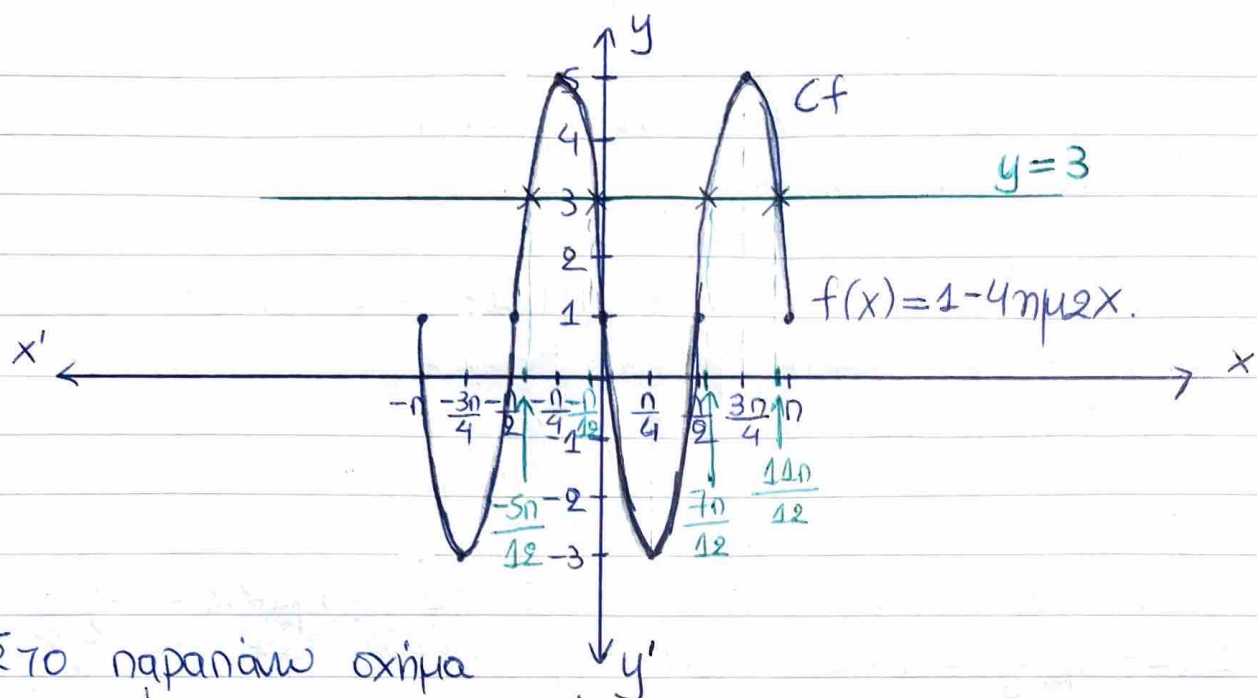 y
5
Cf
4
y = 3
3
2
1
f(x) = 1 - 4ημ2x.
x'
x
-π
-3π/4
-π/2
-π/4
-π/12
π/4
π/2
3π/4
π
-1
-5π/12
-2
7π/12
11π/12
-3
Στο παραπάνω σχήμα
y'